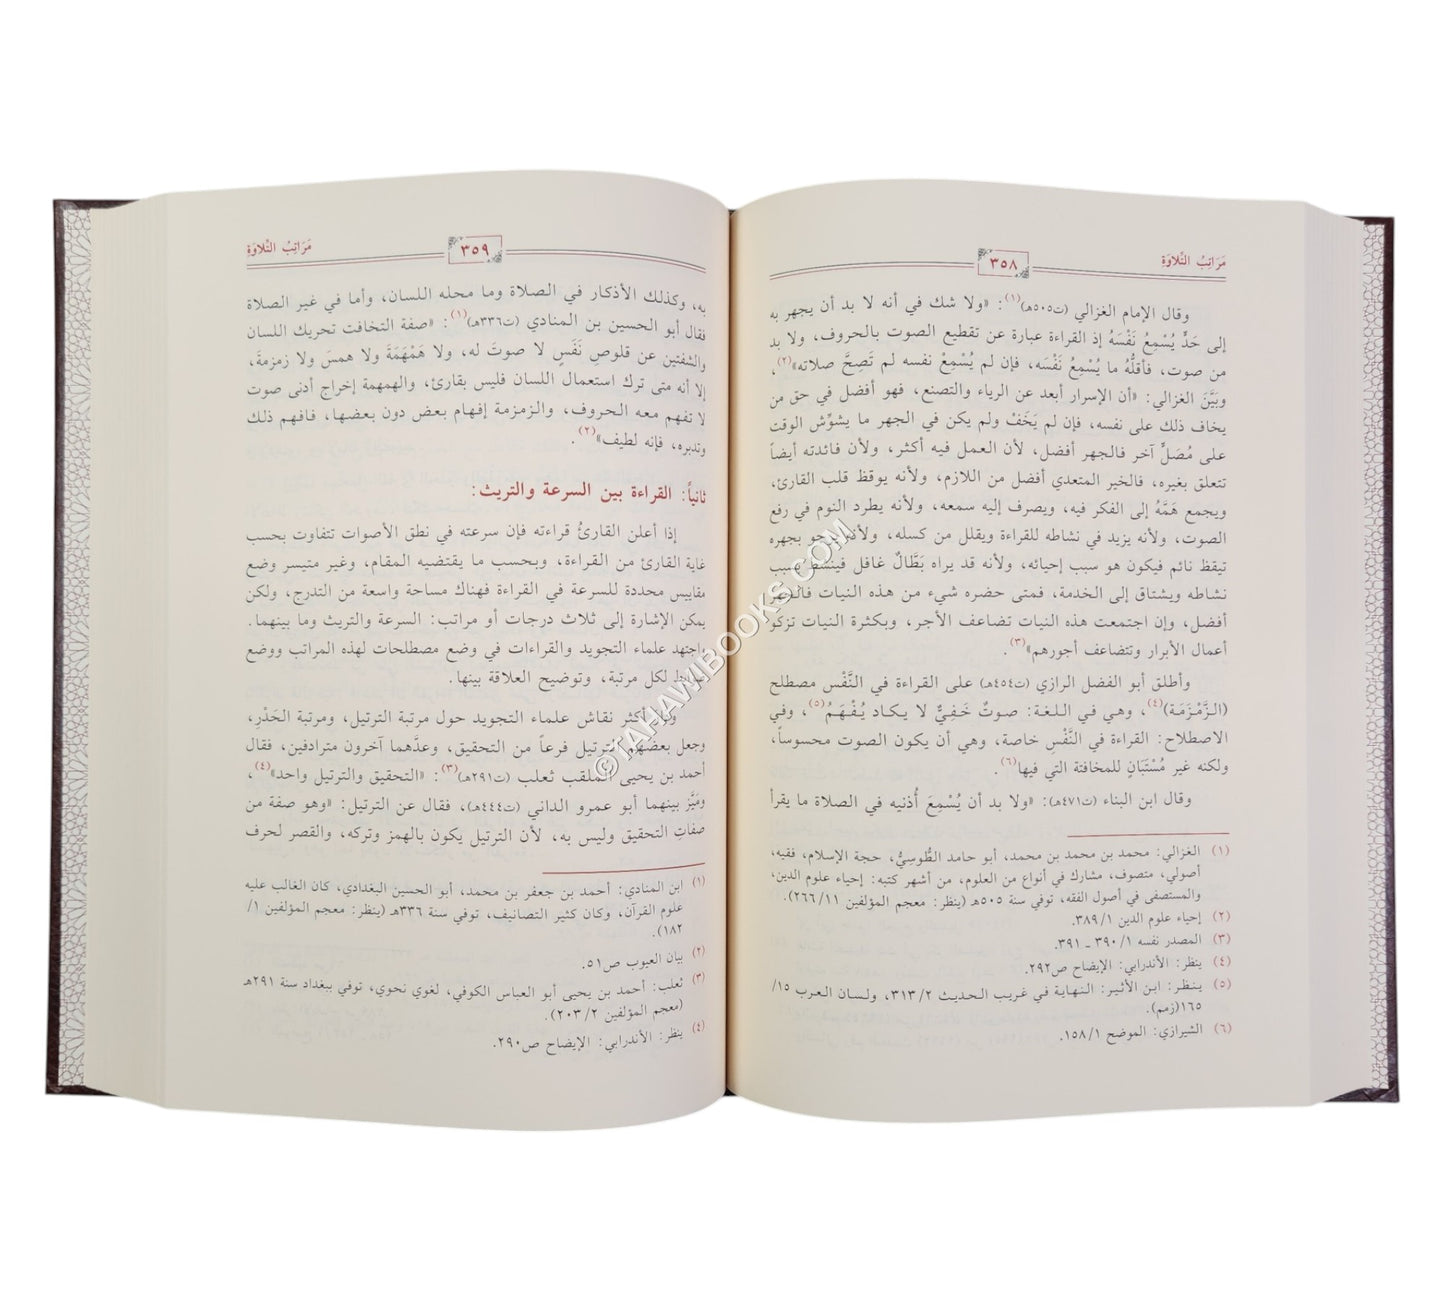 مَرَاتِبُ التِّلاوَة
٣٥٨
وقال الإمام الغزالي (ت٥٠٥هـ)(١): «ولا شك في أنه لا بد أن يجهر به
إلى حَدٍّ يُسْمِعُ نَفْسَهُ إذ القراءة عبارة عن تقطيع الصوت بالحروف، ولا بد
من صوت، فأقلُّه ما يُسْمِعُ نَفْسَه، فإن لم يُسْمِعْ نفسه لم تَصِحَّ صلاته»(٢)،
وبَيَّنَ الغزالي: «أن الإسرار أبعد عن الرياء والتصنع، فهو أفضل في حق من
يخاف ذلك على نفسه، فإن لم يَخَفْ ولم يكن في الجهر ما يشوِّش الوقت
على مُصَلٍّ آخر فالجهر أفضل، لأن العمل فيه أكثر، ولأن فائدته أيضاً
تتعلق بغيره، فالخير المتعدي أفضل من اللازم، ولأنه يوقظ قلب القارئ،
ويجمع هَمَّهُ إلى الفكر فيه، ويصرف إليه سمعه، ولأنه يطرد النوم في رفع
الصوت، ولأنه يزيد في نشاطه للقراءة ويقلل من كسله، ولأنه يرجو بجهره
تيقظ نائم فيكون هو سبب إحيائه، ولأنه قد يراه بَطَّالٌ غافل فينشط بسبب
نشاطه ويشتاق إلى الخدمة، فمتى حضره شيء من هذه النيات فالجهر
أفضل، وإن اجتمعت هذه النيات تضاعف الأجر، وبكثرة النيات تزكو
أعمال الأبرار وتتضاعف أجورهم»(٣).
وأطلق أبو الفضل الرازي (ت٤٥٤هـ) على القراءة في النَّفْس مصطلح
(الزَّمْزَمَة)(٤)، وهي في اللغة: صوتٌ خَفِيٌّ لا يكاد يُفْهَمُ(٥)، وفي
الاصطلاح: القراءة في النَّفْس خاصة، وهي أن يكون الصوت محسوساً،
ولكنه غير مُسْتَبَانٍ للمخافتة التي فيها(٦).
وقال ابن البناء (ت٤٧١هـ): «ولا بد أن يُسْمِعَ أُذنيه في الصلاة ما يقرأ
(١) الغزالي: محمد بن محمد بن محمد، أبو حامد الطُّوسِيُّ، حجة الإسلام، فقيه،
أصولي، متصوف، مشارك في أنواع من العلوم، من أشهر كتبه: إحياء علوم الدين،
والمستصفى في أصول الفقه، توفي سنة ٥٠٥هـ (ينظر: معجم المؤلفين ٢٦٦/١١).
(٢) إحياء علوم الدين ٣٨٩/١.
(٣) المصدر نفسه ٣٩٠/١ ـ ٣٩١.
(٤) ينظر: الأندرابي: الإيضاح ص٢٩٢.
(٥) ينظر: ابن الأثير: النهاية في غريب الحديث ٣١٣/٢، ولسان العرب ١٥/
١٦٥(زمم).
(٦) الشيرازي: الموضح ١٥٨/١.
٣٥٩
مَرَاتِبُ التِّلاوَة
به، وكذلك الأذكار في الصلاة وما محله اللسان، وأما في غير الصلاة
فقال أبو الحسين بن المنادي (ت٣٣٦هـ)(١): «صفة التخافت تحريك اللسان
والشفتين عن قلوصِ نَفَسٍ لا صوتَ له، ولا هَمْهَمَةَ ولا همسَ ولا زمزمةَ،
إلا أنه متى ترك استعمال اللسان فليس بقارئ، والهمهمة إخراج أدنى صوت
لا تفهم معه الحروف، والزمزمة إفهام بعض دون بعضها، فافهم ذلك
وتدبره، فإنه لطيف»(٢).
ثانياً: القراءة بين السرعة والتريث:
إذا أعلن القارئُ قراءته فإن سرعته في نطق الأصوات تتفاوت بحسب
غاية القارئ من القراءة، وبحسب ما يقتضيه المقام، وغير متيسر وضع
مقاييس محددة للسرعة في القراءة فهناك مساحة واسعة من التدرج، ولكن
يمكن الإشارة إلى ثلاث درجات أو مراتب: السرعة والتريث وما بينهما.
واجتهد علماء التجويد والقراءات في وضع مصطلحات لهذه المراتب ووضع
لكل مرتبة، وتوضيح العلاقة بينها.
أكثر نقاش علماء التجويد حول مرتبة الترتيل، ومرتبة الحَدْرِ،
وجعل بعضهم الترتيل فرعاً من التحقيق، وعدَّهما آخرون مترادفين، فقال
أحمد بن يحيى الملقب ثعلب (ت٢٩١هـ)(٣): «التحقيق والترتيل واحد»(٤)،
ومَيَّز بينهما أبو عمرو الداني (ت٤٤٤هـ)، فقال عن الترتيل: «وهو صفة من
صفات التحقيق وليس به، لأن الترتيل يكون بالهمز وتركه، والقصر لحرف
(١) ابن المنادي: أحمد بن جعفر بن محمد، أبو الحسين البغدادي، كان الغالب عليه
علوم القرآن، وكان كثير التصانيف، توفي سنة ٣٣٦هـ (ينظر: معجم المؤلفين ١/
١٨٢).
(٢) بيان العيوب ص٥١.
(٣) ثعلب: أحمد بن يحيى أبو العباس الكوفي، لغوي نحوي، توفي ببغداد سنة ٢٩١هـ
(معجم المؤلفين ٢٠٣/٢).
(٤) ينظر: الأندرابي: الإيضاح ص٢٩٠.
©TAHAWIBOOKS.COM